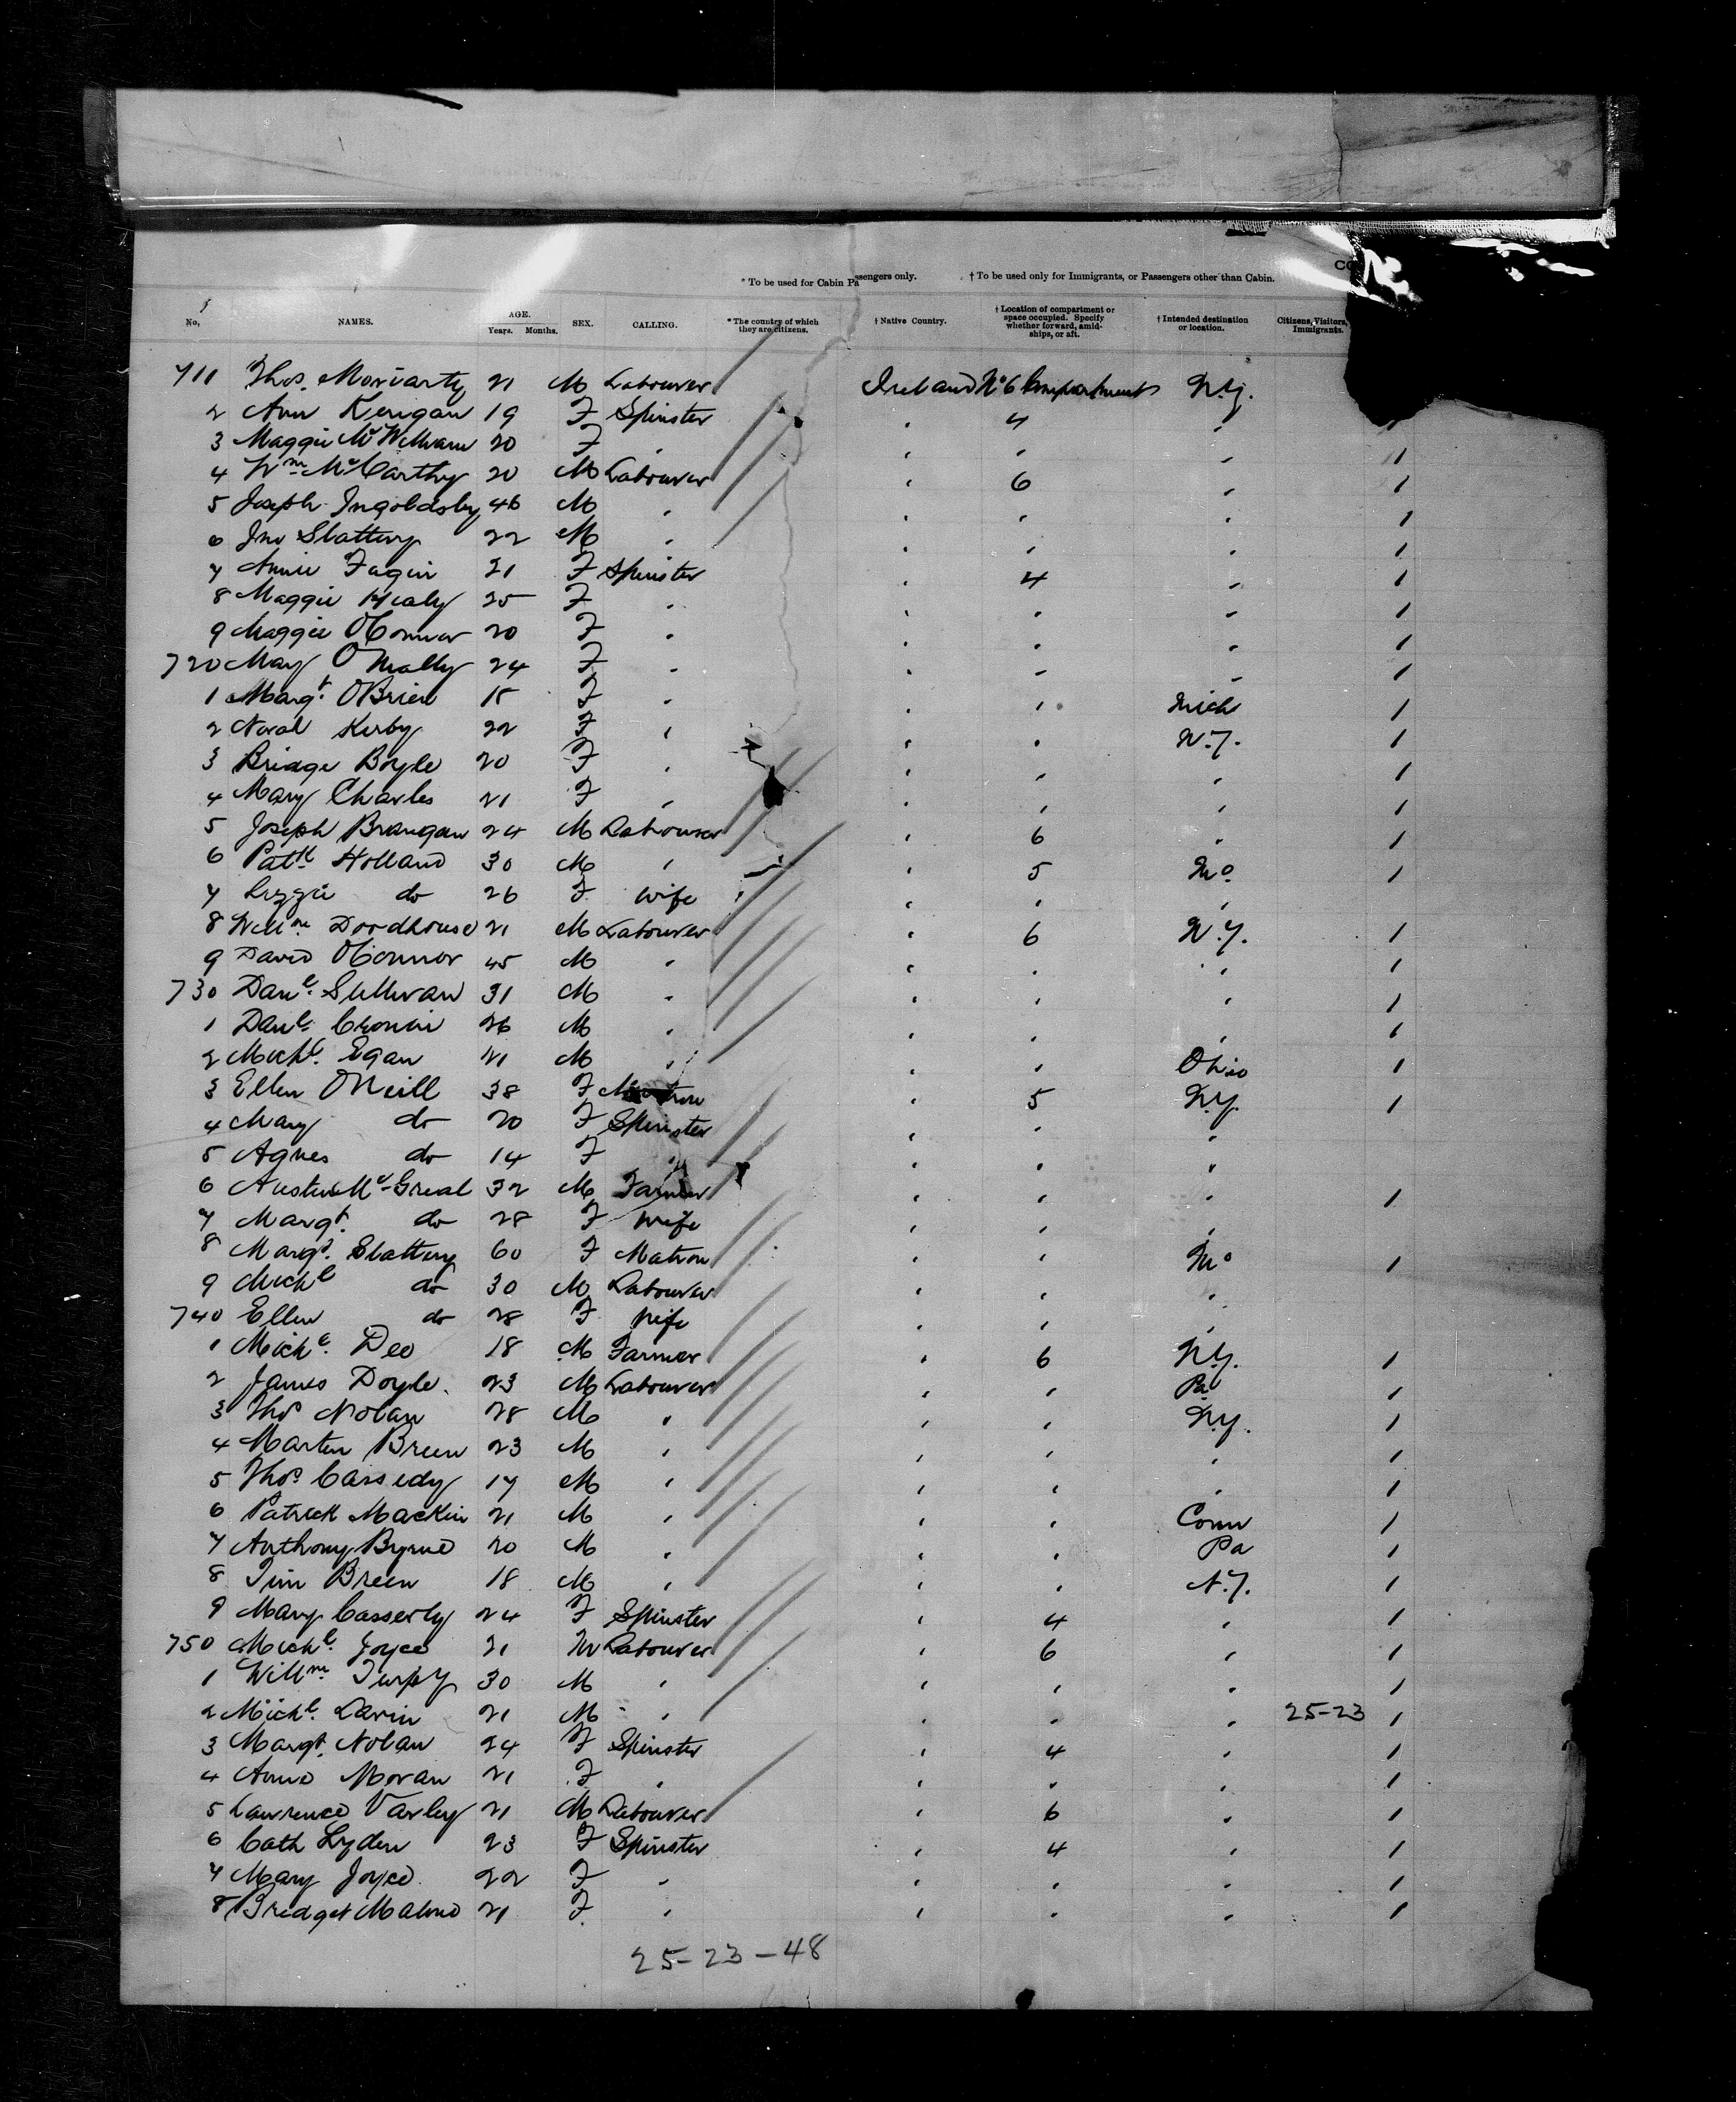 * To be used for Cabin Passengers only. † To be used only for Immigrants, or Passengers other than Cabin.
No, NAMES. AGE. Years. Months. SEX. CALLING. * The country of which they are citizens. † Native Country. † Location of compartment or space occupied. Specify whether forward, amidships, or aft. † Intended destination or location. Citizens, Visitors, Immigrants.
711 Thos. Moriarty 21 M Labourer Ireland No 6 Compartment N.Y.
2 Ann Kerigan 19 F Spinster " 4 "
3 Maggie 20 F " " " " 1
4 Wm McCarthy 20 M Labourer " 6 " 1
5 Joseph Ingoldsby 46 M " " " " 1
6 Jno Slattery 22 M " " " " 1
7 Annie Fagin 21 F Spinster " 4 " 1
8 Maggie Healy 25 F " " " " 1
9 Maggie O'Connor 20 F " " " " 1
720 Mary O'Mally 24 F " " " " 1
1 Margt. O'Brien 15 F " " " Mich 1
2 Noral Kerby 22 F " " " N.Y. 1
3 Bridge Boyle 20 F " " " " 1
4 Mary Charles 21 F " " " " 1
5 Joseph Brangan 24 M Labourer " 6 " 1
6 Patk Holland 30 M " " 5 Mo 1
7 Lizzie do 26 F Wife " " "
8 Willm Doodhouse 21 M Labourer " 6 N.Y. 1
9 David O'Connor 45 M " " " " 1
730 Danl. Sullivan 31 M " " " " 1
1 Danl. Cronin 26 M " " " " 1
2 Michl. Egan 21 M " " " Ohio 1
3 Ellen O'Neill 38 F Matron " 5 N.Y. 1
4 Mary do 20 F Spinster " " "
5 Agnes do 14 F " " " "
6 Austin McGreal 32 M Farmer " " " 1
7 Margt. do 28 F Wife " " "
8 Margt. Slattery 60 F Matron " " Mo 1
9 Michl do 30 M Labourer " " "
740 Ellen do 28 F Wife " " "
1 Michl. Deo 18 M Farmer " 6 N.Y. 1
2 James Doyle. 23 M Labourer " " Pa 1
3 Thos Nolan 28 M " " " N.Y. 1
4 Marten Breen 23 M " " " " 1
5 Thos Cassedy 17 M " " " " 1
6 Patrick Mackin 21 M " " " Conn 1
7 Anthony Byrne 20 M " " " Pa 1
8 Tim Breen 18 M " " " N.Y. 1
9 Mary Casserly 24 F Spinster " 4 " 1
750 Michl. Joyce 21 M Labourer " 6 " 1
1 Willm 30 M " " " " 1
2 Michl. Lavin 21 M " " " " 25-23 1
3 Margt. Nolan 24 F Spinster " 4 " 1
4 Annie Moran 21 F " " " " 1
5 Lawrence Varley 21 M Labourer " 6 " 1
6 Cath Lyden 23 F Spinster " 4 " 1
7 Mary Joyce 22 F " " " " 1
8 Bridget Malone 21 F " " " " 1
25-23-48